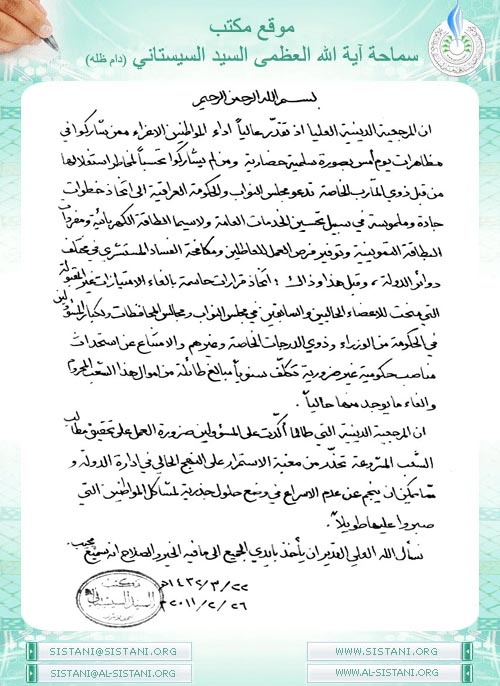 موقع مكتب
سماحة آية الله العظمى السيد السيستاني (دام ظله)
بسم الله الرحمن الرحيم
ان المرجعية الدينية العليا اذ تقدّر عالياً اداء المواطنين الاعزاء ممن شاركوا في
مظاهرات يوم أمس بصورة سلمية حضارية ومن لم يشاركوا تحسباً لمخاطر استغلالها
من قبل ذوي المآرب الخاصة تدعو مجلس النواب والحكومة العراقية الى اتخاذ خطوات
جادة وملموسة في سبيل تحسين الخدمات العامة ولاسيما الطاقة الكهربائية ومفردات
البطاقة التموينية وتوفير فرص العمل للعاطلين ومكافحة الفساد المستشري في مختلف
دوائر الدولة ، وقبل هذا وذاك : اتخاذ قرارات حاسمة بالغاء الامتيازات غير المقبولة
التي منحت للاعضاء الحاليين والسابقين في مجلس النواب ومجالس المحافظات ولكبار المسؤولين
في الحكومة من الوزراء وذوي الدرجات الخاصة وغيرهم والامتناع عن استحداث
مناصب حكومية غير ضرورية تكلّف سنوياً مبالغ طائلة من اموال هذا الشعب المحروم
والغاء ما يوجد منها حالياً .
ان المرجعية الدينية التي طالما أكّدت على المسؤولين ضرورة العمل على تحقيق مطالب
الشعب المشروعة تحذّر من مغبة الاستمرار على النهج الحالي في ادارة الدولة و
مما يمكن ان ينجم عن عدم الاسراع في وضع حلول جذرية لمشاكل المواطنين التي
صبروا عليها طويلاً .
نسأل الله العلي القدير ان يأخذ بايدي الجميع الى ما فيه الخير والصلاح انه سميع مجيب .
٢٢ / ٣ / ١٤٣٢ هـ
٢٦ / ٢ / ٢٠١١ م
مكتب
السيد السيستاني
SISTANI@SISTANI.ORG
WWW.SISTANI.ORG
SISTANI@AL-SISTANI.ORG
WWW.AL-SISTANI.ORG